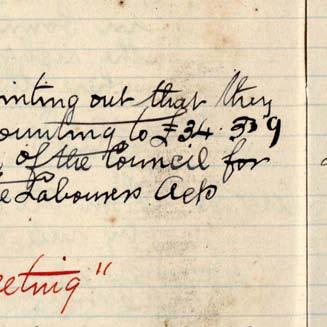 inting out that they
ounting to £34.
of the Council for
e Labourers Acts
eeting"